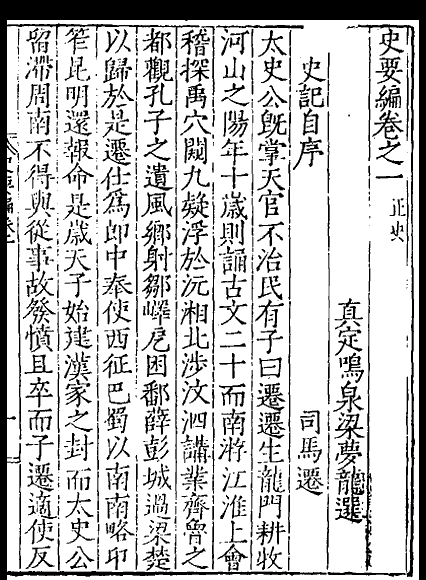 史要編卷之一 正史
真定鳴泉梁夢龍選
史記自序 司馬遷
太史公旣掌天官不治民有子曰遷遷生龍門耕牧
河山之陽年十歲則誦古文二十而南游江淮上會
稽探禹穴闚九疑浮於沅湘北涉汶泗講業齊魯之
都觀孔子之遺風鄉射鄒嶧戹困鄱薛彭城過梁楚
以歸於是遷仕爲郎中奉使西征巴蜀以南南略邛
笮昆明還報命是歲天子始建漢家之封而太史公
留滯周南不得與從事故發憤且卒而子遷適使反